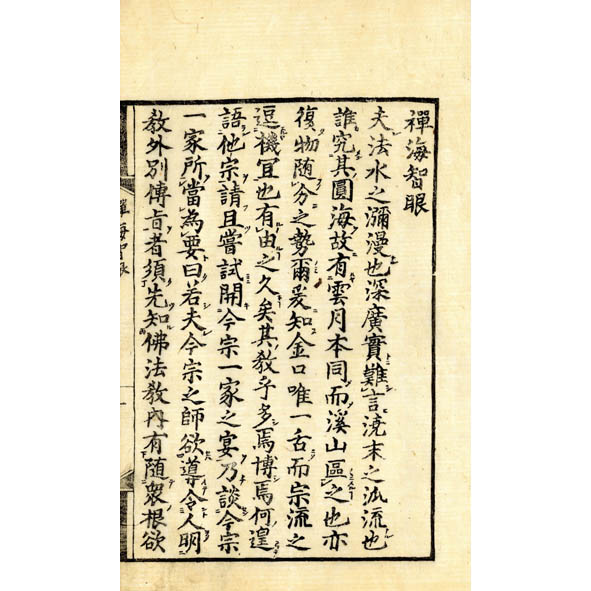 禪海智眼
夫法水之瀰漫也深廣實難言澆末之泒流也
誰究其圓海故有雲月本同而溪山區之也亦
復物随分之勢爾爰知金口唯一舌而宗流之
逗機冝也有由之久矣其敎乎多焉博焉何遑
語他宗請且嘗試開今宗一家之宴乃談今宗
一家所當為要曰若夫今宗之師欲導令人明
敎外別傳旨者須先知佛法敎內有随衆根欲
禪海智眼
一